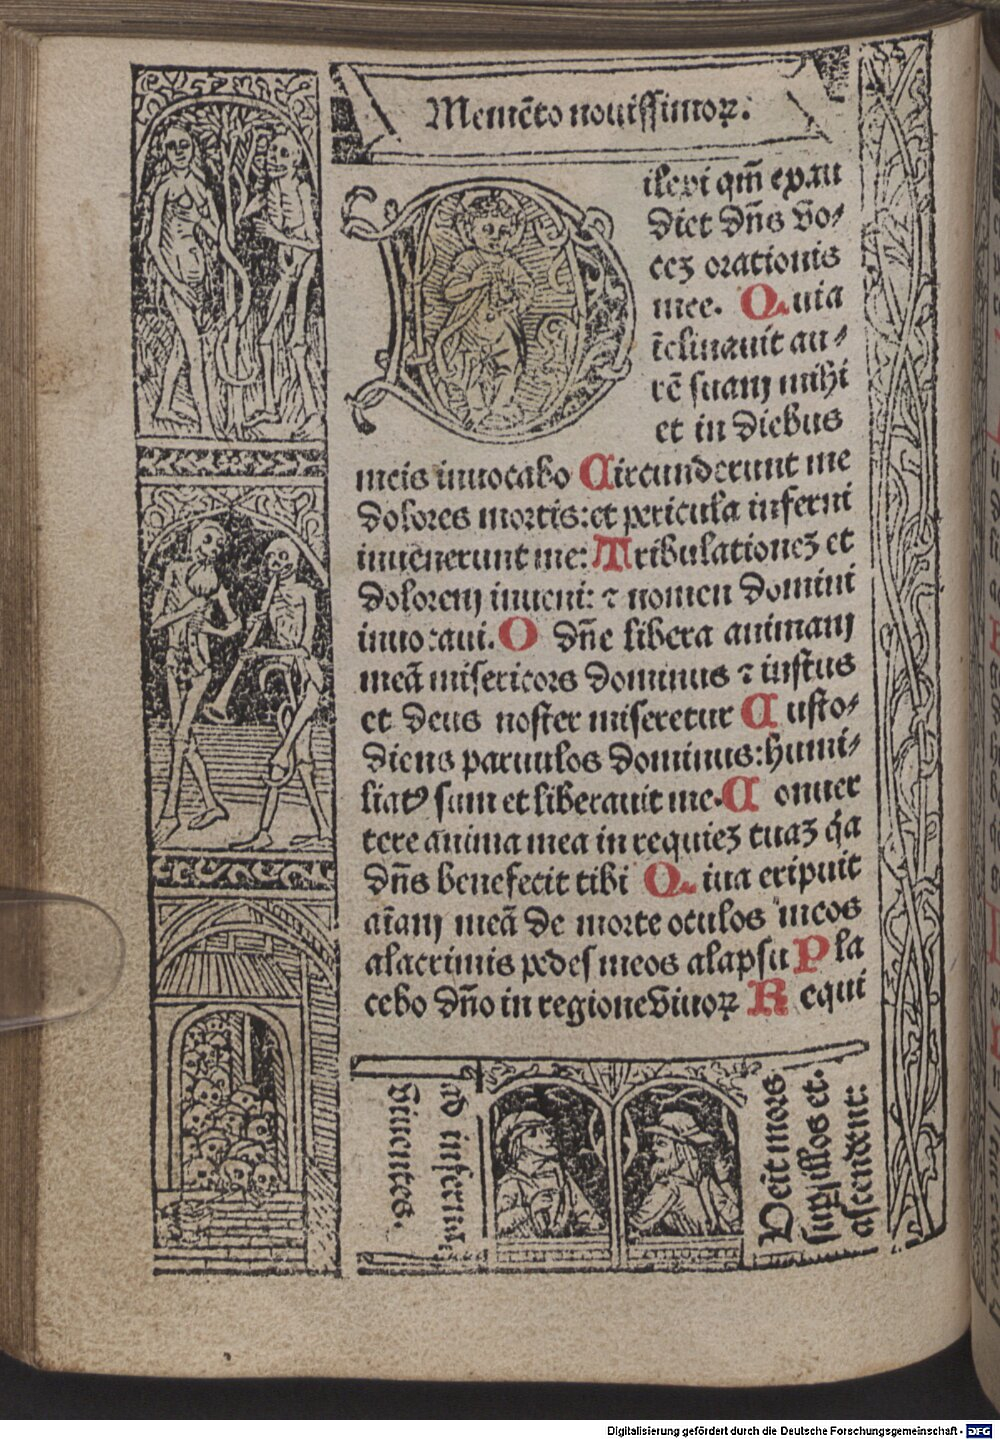 Memẽto nouissimoꝝ.
Dilexi qm̃ exau
diet dñs vo⸗
ceȝ orationis
mee. Quia
ĩclinauit au⸗
rẽ suam mihi
et in diebus
meis inuocabo Circunderunt me
dolores mortis: et pericula inferni
inuenerunt me: Tribulationeȝ et
dolorem inueni: ⁊ nomen domini
inuocaui. O dñe libera animam
meã misericors dominus ⁊ iustus
et deus noster miseretur Custo⸗
diens paruulos dominus: humi⸗
liatꝰ sum et liberauit me. Conuer
tere anima mea in requieȝ tuaȝ q̃a
dñs benefecit tibi Quia eripuit
aĩam meã de morte oculos meos
alacrimis pedes meos alapsu Pla
cebo dño in regione viuoꝝ Requi
Veĩt mors
suꝑ illos et.
ascendẽnt:
ad infernũ
Viuentes.
Digitalisierung gefördert durch die Deutsche Forschungsgemeinschaft - DFG